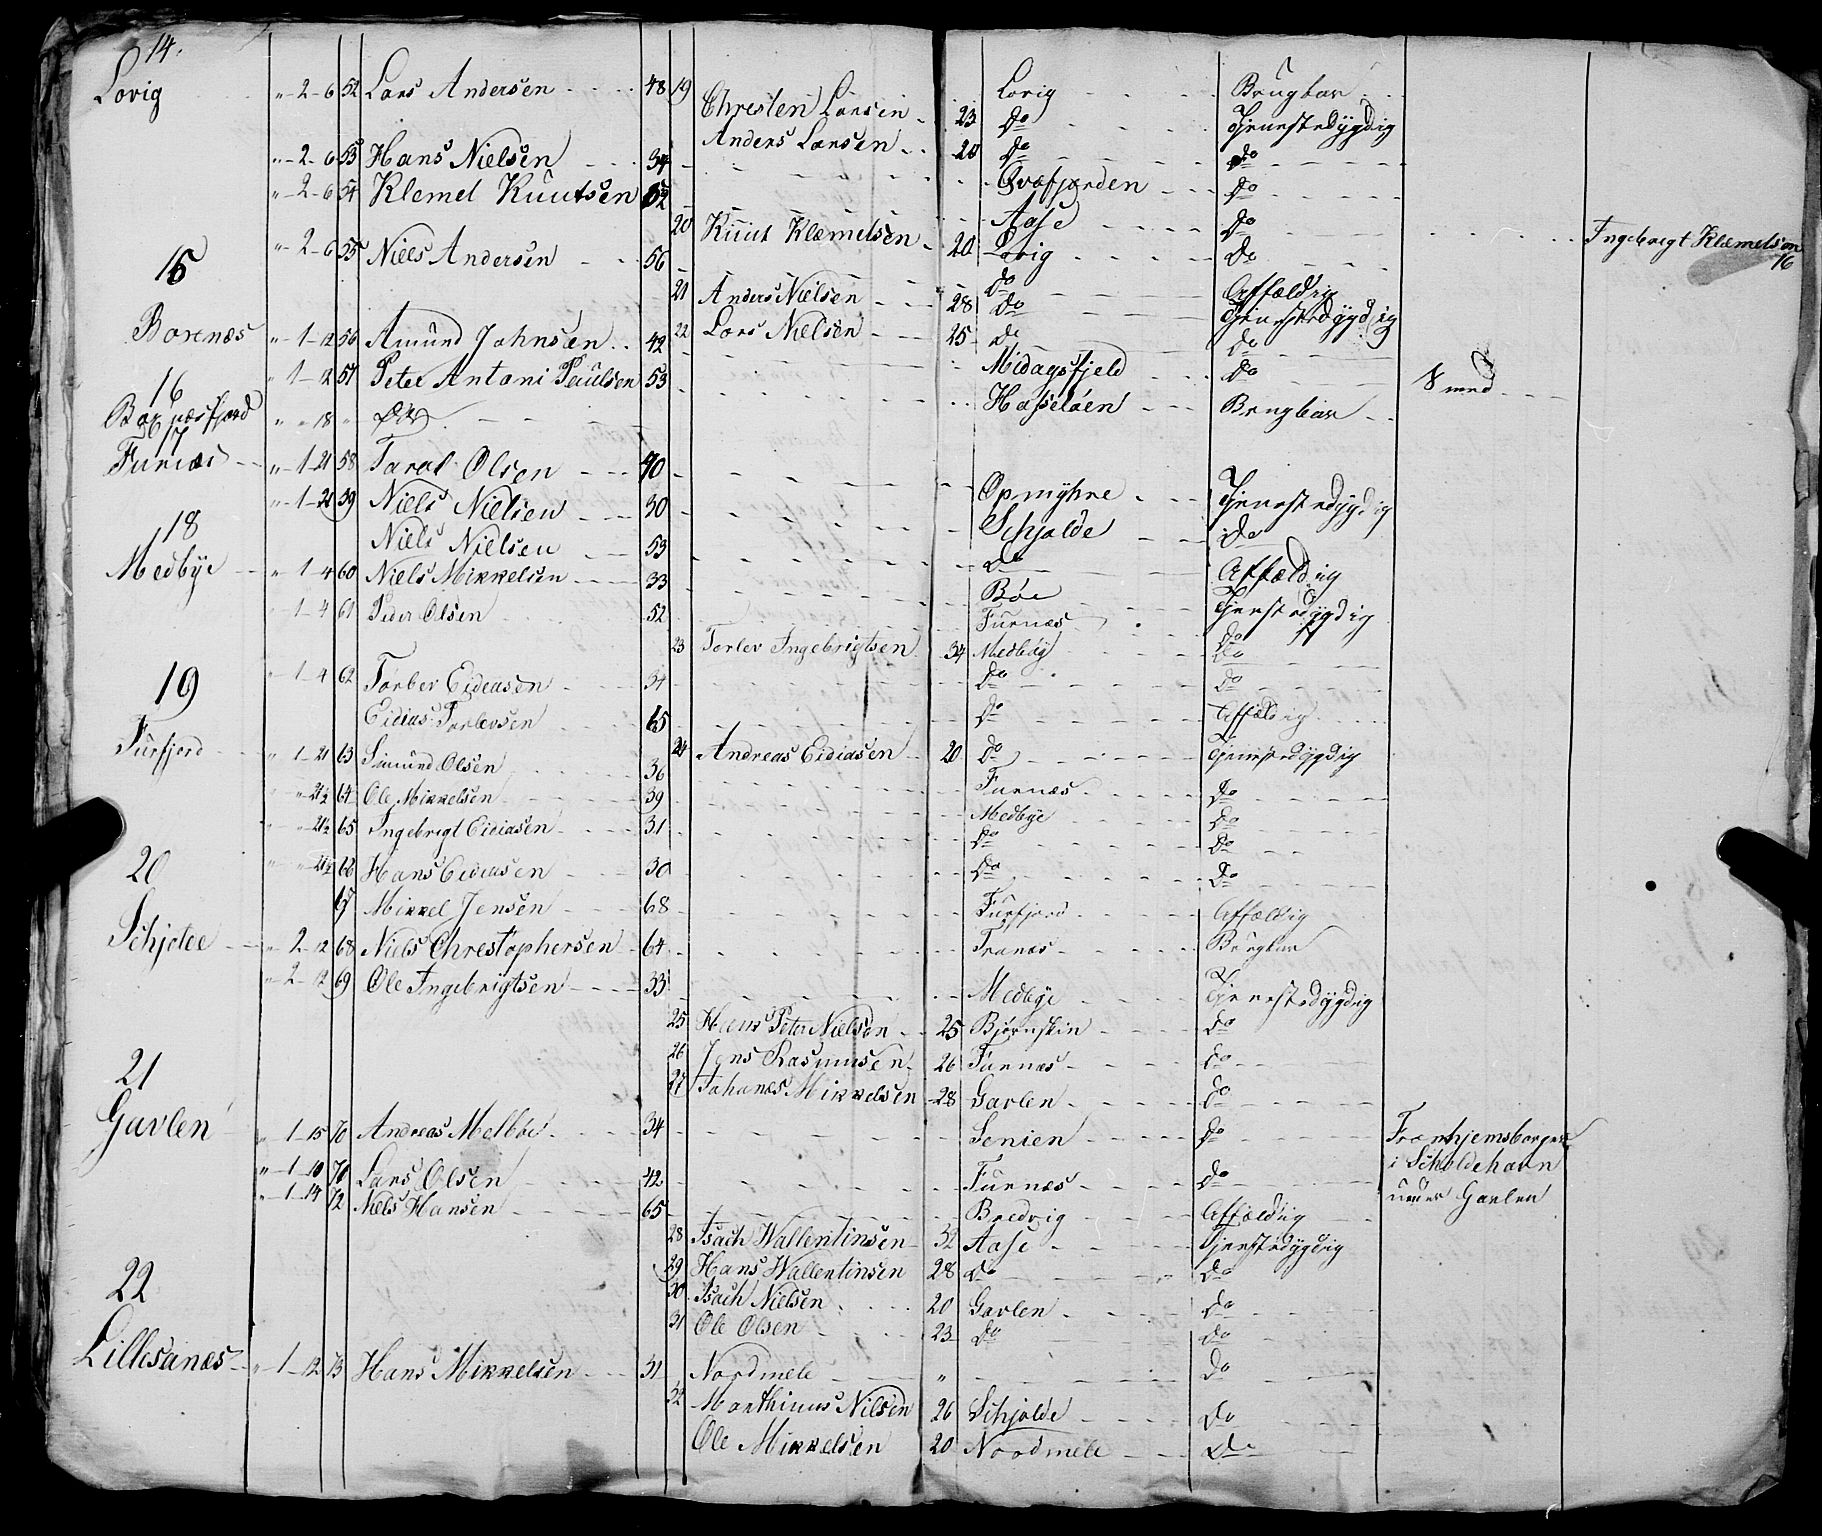 14.
Lovig " - 2 - 6 52 Lars Andersen 48 19 Lovig Brugbar
Christen Larsen 23 Do Tjenestedygdig
Anders Larsen 20 Do do
" - 2 - 6 53 Hans Nielsen 34 Qvæfjorden Do
" - 2 - 6 54 Klemet Knutsen 52 Aase Do
20 Knut Klæmetsen 20 Lovig Do Ingebrigt Klæmetsen 16
" - 2 - 6 55 Niels Andersen 56 do Affældig
15
21 Anders Nielsen 28 Do Tjenestedygdig
22 Lars Nielsen 25 Do do
Borenæs " - 1 - 12 56 Amund Johnsen 42 Midagsfjeld Do Smed
" 1 - 12 57 Peter Antoni Paulsen 53 Hasseløen Brugbar
16
Borenæsfjord " " 18 " Do
17
Furnæs " - 1 - 21 58 Taral Olsen 40 Opmyhre Tjenestedygdig
" - 1 - 21 59 Niels Nielsen 30 Schjolde Do
18
Niels Nielsen 53 Do Affældig
Medbye " 1 - 4 60 Niels Mikkelsen 33 Bøe Tjenestedygdig
" 1 - 4 61 Peder Olsen 52 Furnæs Do
23 Torlev Ingebrigtsen 34 Medbÿ Do
19
" 1 - 4 62 Torber Eidiasen 34 Do Do
Eidias Torlevsen 65 Do Affældig
24 Andreas Eidiasen 20 do Tjenestedygdig
Furfjord " 1 - 21 63 Simund Olsen 36 Furnæs Do
" " 21½ 64 Ole Mikkelsen 39 Medbye Do
" " 21½ 65 Ingebrigt Eidiasen 31 Do Do
20
" " 21½ 66 Hans Eidiasen 30 Do Do
67 Mikkel Jensen 68 Furfjord Affældig
Schjolee " 2 - 12 68 Niels Chrestophersen 64 Tranæs Brugbar
" - 2 - 12 69 Ole Ingebrigtsen 33 Medbye Tjenestedygdig
25 Hans Peter Nielsen 25 Bjørnskin Do
26 Jens Rasmussen 26 Furnæs Do
21
27 Johanes Mikkelsen 28 Gavlen Do
Gavlen " 1 - 15 70 Andreas Melbøe 34 Senien Do Frænhjemsborger
i Scholdehavn
under Gavlen
" - 1 - 10 71 Lars Olsen 42 Furnæs Do
" - 1 - 14 72 Niels Hansen 65 Bredvig Affældig
28 Isach Wallentinsen 32 Aase Tjenestedygdig
29 Hans Wallentinsen 28 Do Do
22
30 Isach Nielsen 20 Gavlen Do
31 Ole Olsen 23 Do Do
Lillesanæs " - 1 - 12 73 Hans Mikkelsen 31 Nordmele " Do
32 Marthinus Nilsen 26 Schjolde Do
Ole Mikkelsen 20 Nordmele Do